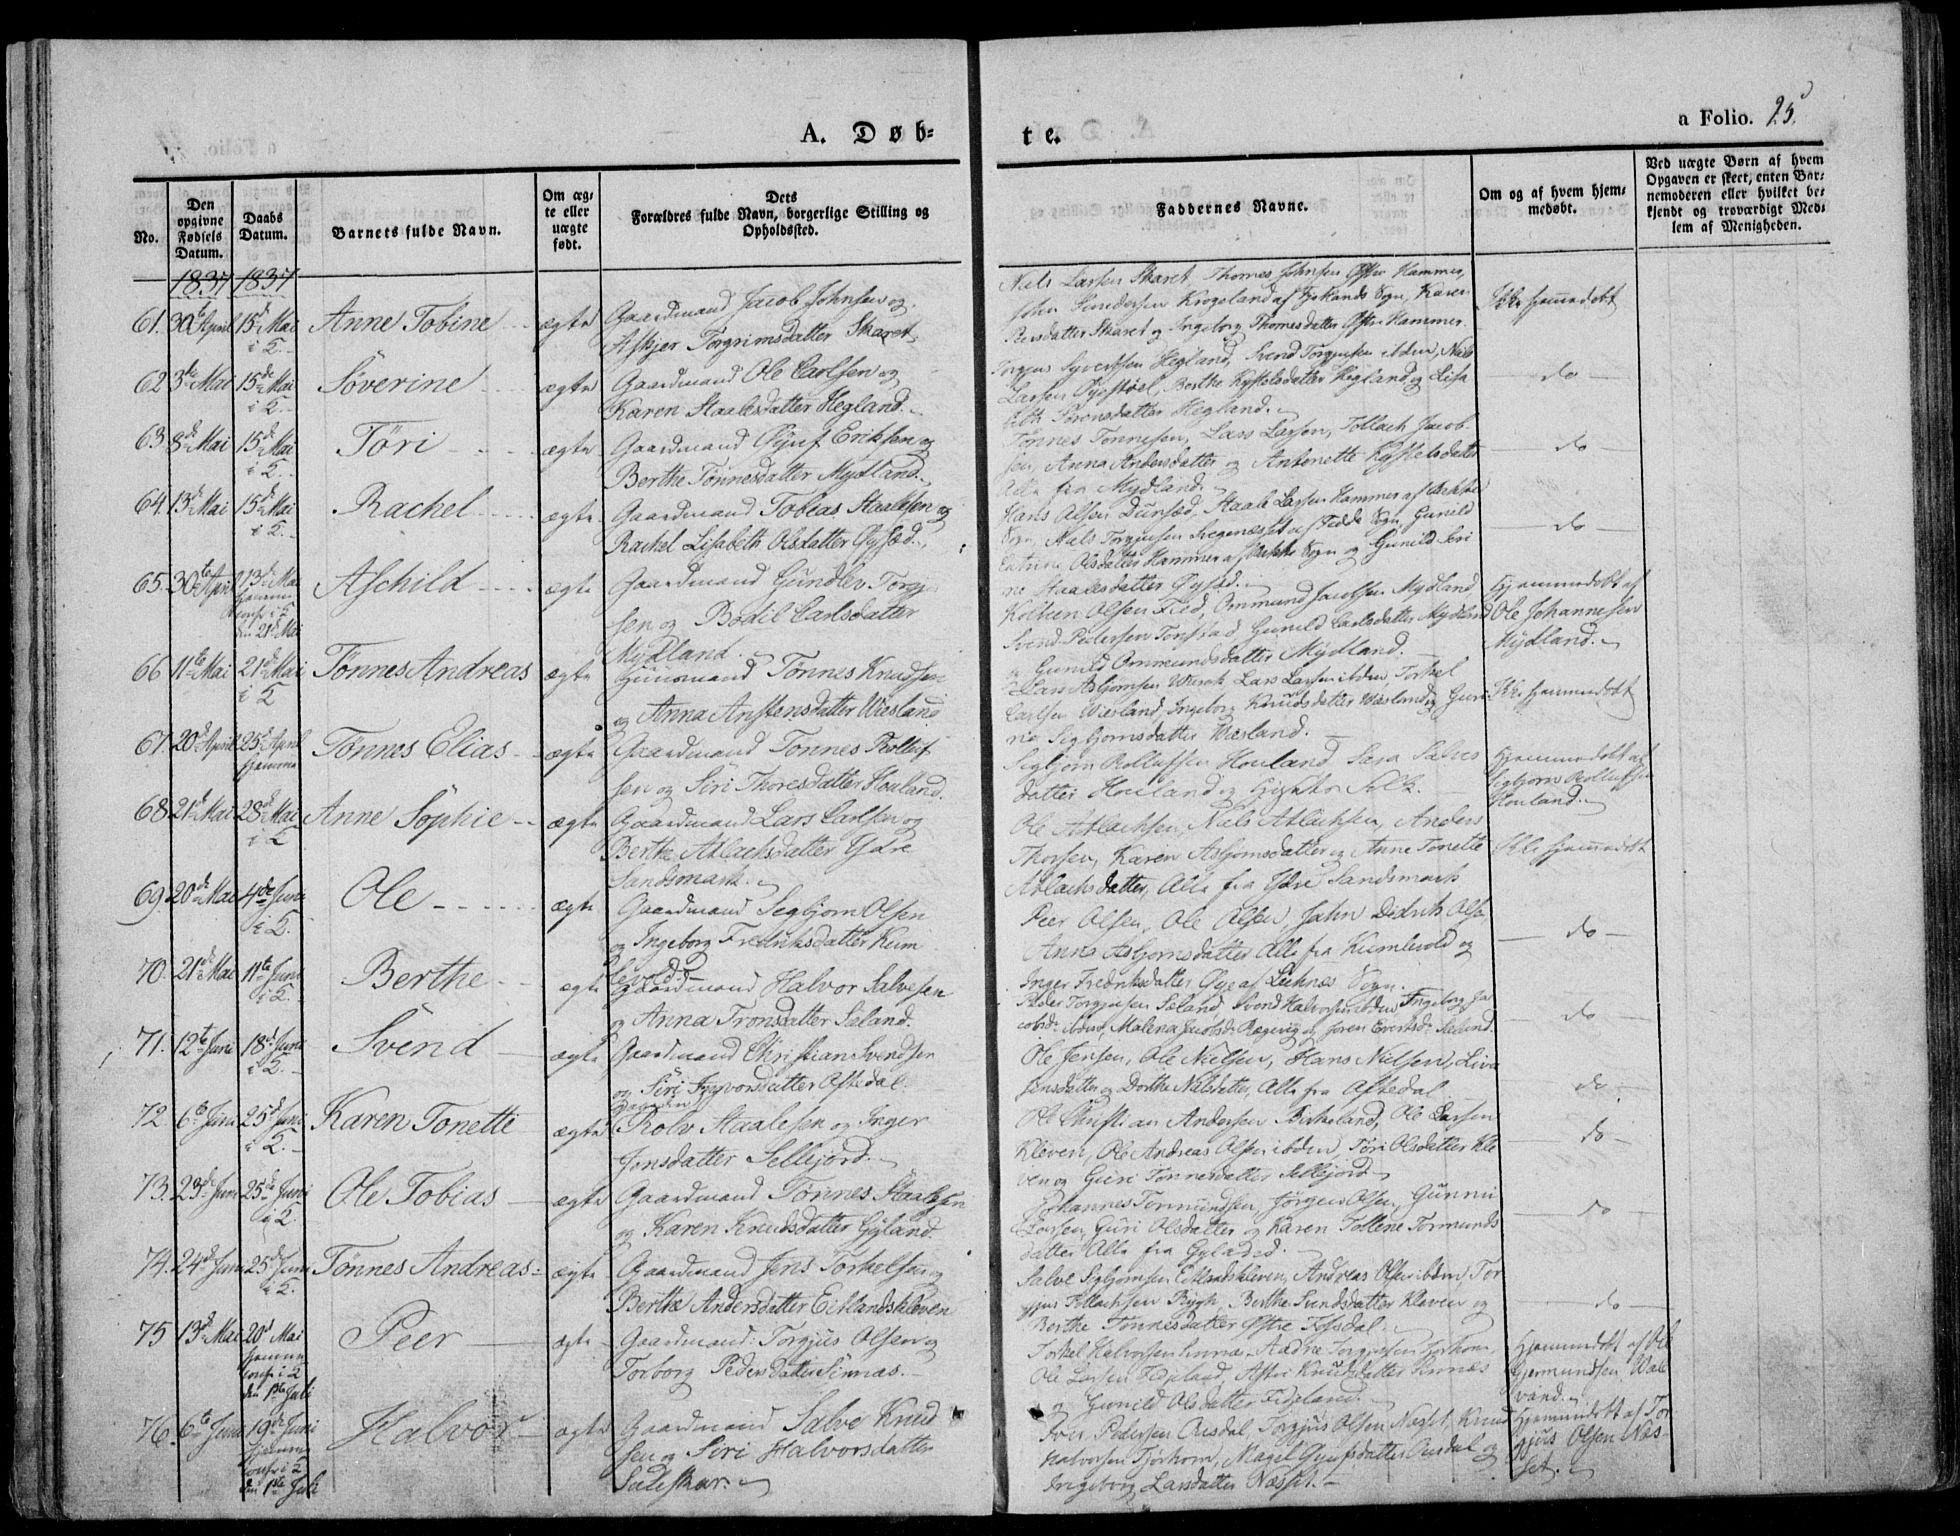 A. Døb-
te.
a Folio. 25
No.
Den opgivne Fødsels Datum.
Daabs Datum.
Barnets fulde Navn.
Om ægte eller uægte født.
Dets Forældres fulde Navn, borgerlige Stilling og Opholdssted.
Faddernes Navne.
Om og af hvem hjemmedøbt.
Ved uægte Børn af hvem Opgaven er skeet, enten Barnemoderen eller hvilket bekjendt og troværdigt Medlem af Menigheden.
1837 1837
61. 30te April 15de Mai Anne Tobine ægte
i K.
Gaardmand Jacob Johnsen og
Torgrimsdatter Skaret
Niels Larsen Skaret, Thomas Johnsen Østre Hammer,
Krogeland af Fjotlands Sogn, Karen
Skaret og Ingeborg Thomesdatter Østre Hammer
Ikke hjemmedøbt
62 3de Mai 15de Mai Söverine ægte
Gaardmand Ole Carlsen og
Karen Staalesdatter Hegland.
Torgjus Syvertsen Hegland, Svend Torgjusen ibden, Niels
Larsen Öyestöel, Berthe Hegland og Lisa
beth Hegland.
do
63. 8de Mai 15de Mai Töri ægte
Gaardmand Eriksen og
Berthe Tönnesdatter Mydland.
Tönnes Tönnesen, Lars Larsen, Tollach Jacob
sen, Anna Andersdatter og Antonette
Alle fra Mydland.
do
64 13de Mai 15de Mai Rachel ægte
Gaardmand Tobias Staalesen og
Rachel Lisabeth Olsdatter
Hans Olsen, Staale Larsen Hammer af Bakke
Sogn, Niels Torgjusen af Fedde Sogn, Gunild
Catrine Olsdatter Hammer af Bakke Sogn og Gunild Seri
ne Staalesdatter
do
65. 30te April 13de Mai Aschild ægte
hjemme
conf. i K
den 21de Mai
Gaardmand Gundlev Torg
sen og Bodil Carlsdatter
Mydland.
Olsen Lied, Ommund Jacobsen Mydland
Svend Pedersen Tonstad, Gunild Carlsdatter Mydland
og Gunild Ommundsdatter Mydland.
Hjemmedöbt af
Ole Johannesen
Mydland.
66 11te Mai 21de Mai Tönnes Andreas ægte
i K
Huusmand Tönnes Knudsen
og Anna Anstensdatter Wiesland
Lars Asbjørnsen, Lars Larsen ibden, Torkel
Carlsen Wiesland, Ingeborg Knudsdatter Wiesland og Guri
ne Segbjörnsdatter Wiesland.
Ikke hjemmedöbt
67. 20de April 25de April Tönnes Elias ægte
hjemme
Gaardmand Tönnes Rolluf
sen og Siri Thoresdatter Houland.
Segbjörn Rollufsen Houland, Sara Salves
datter Houland og
Hjemmedöbt af
Segbjörn Rollufsen
Houland.
68 21de Mai 28de Mai Anne Sophie ægte
i K
Gaardmand Lars Carlsen og
Berthe Atlachsdatter Ydre
Sandsmark.
Ole Atlachsen, Niels Atlachsen, Anders
Thorsen, Karen Asbjörnsdatter og Anne Tonette
Atlachsdatter, Alle fra Ydre Sandsmark
Ikke hjemmedöbt
69. 20de Mai 4de Juni Ole ægte
i K.
Gaardmand Segbjørn Olsen
og Ingeborg Fredriksdatter Kum
levold.
Peer Olsen, Ole Olsen, Didrik Olsen
Anne Asbjørnsdatter Alle fra Kumlevold og
Inger Fredriksdatter Öye af Sogn.
do
70. 21de Mai 11te Juni Berthe ægte
i K.
Gaardmand Halvor Salvesen
og Anna Tronsdatter Sæland.
Peder Torgjusen Sæland, Svend Halvorsen ibden, Ingeborg Ja
cobsd. ibden, Malena Jacobsd. Rægevig og Joren Evertsd. Sæland.
do
71. 12te Juni 18de Juni Svend ægte
i K.
Gaardmand Christian Svendsen
og Siri datter Aftedal.
Ole Jensen, Ole Nielsen, Hans Nielsen, Liva
Jensdatter og Dorthe Nielsdatter, Alle fra Aftedal
do
72. 6te Juni 25de Juni Karen Tonette ægte
i K.
Rolv Staalesen og Inger
Jonsdatter Sellejord.
Ole Christian Andersen Birkeland, Ole Larsen
Kleven, Ole Andreas Olsen ibden, Töri Olsdatter Kle
ven og Guri Tönnesdatter Sellejord
do
73. 23de Juni 25de Juni Ole Tobias ægte
i K.
Gaardmand Tönnes Staalesen
og Karen Knudsdatter Gyland
Johannes Tormundsen, Jörgen Olsen, Gunni
Larsen, Guri Olsdatter og Karen Tollene Tormunds
datter Alle fra Gyland.
do
74. 24de Juni 25de Juni Tönnes Andreas ægte
i K.
Gaardmand Jens Torkelsen og
Berthe Andersdatter Eiklandskleven
Salve Segbjørnsen Eiklandskleven, Andreas Olsen ibden, Tor
gjus Tollachsen Rygh, Berthe datter Kleven og
Berthe Tönnesdatter Østre
do
75 13de Mai 20de Mai Peer ægte
hjemme
conf i K
den 1ste Juli
Gaardmand Torgjus Olsen og
Torborg Pedersdatter Sinnæs.
Torkel Halvorsen, Aadne Torgjusen Tjorhom,
Ole Larsen Fidjeland, Knudsdatter Sinnæs
og Gunild Olsdatter Fidjeland.
Hjemmedöbt af Ole
Gjermundsen
vand.
76. 6te Juni 19de Juni Halvor ægte
hjemme
conf i K
den 1ste Juli
Gaardmand Salve Knud
sen og Siri Halvorsdatter
Suleskar.
Iver Pedersen Ousdal, Torgjus Olsen Næsset, Knud
Halvorsen Tjorhom, Magel datter Ousdal og
Ingeborg Larsdatter Næsset.
Hjemmedöbt af Tor
gjus Olsen Næs-
set.